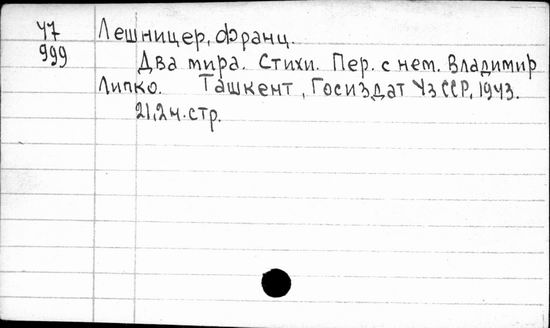 У7 Лешницер, Франц.
999 Два мира. Стихи. Пер. с нем. Владимир
Липко. Ташкент, Госиздат УзССР, 1943.
21,2н.стр.